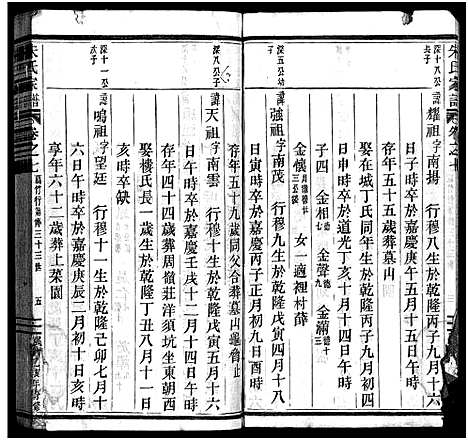 朱氏家譜 卷之七
深十八公
長子
諱耀祖字南揚 行穆八生於乾隆丙子九月十六
日午時卒於嘉慶庚午五月十五日午時
存年五十五歲葬墓山
娶在城丁氏同年生於乾隆丙子九月初四
日申時卒於道光丁亥十月十四日午時
子四 金相 金聲 金滿
金懷 女一適裡村薛
深五公幼
子
諱強祖字南茂 行穆九生於乾隆戊寅四月十八
日寅時卒於嘉慶丙子正月初九日酉時
存年五十九歲同父合葬墓山龜首止
深八公子
諱天祖字南雲 行穆十生於乾隆戊寅五月十六
日午時卒於嘉慶壬戌十二月十四日午時
存年四十四歲葬周嶺莊洋須坑坐東朝西
娶樓氏長一歲生於乾隆丁丑八月十一日
亥時卒缺
深十一公
次子
諱鳴祖字望廷 行穆十一生於乾隆己卯七月十
六日午時卒於嘉慶庚辰二月初十日亥時
享年六十二歲葬上菜園
朱氏家譜 卷之七 五